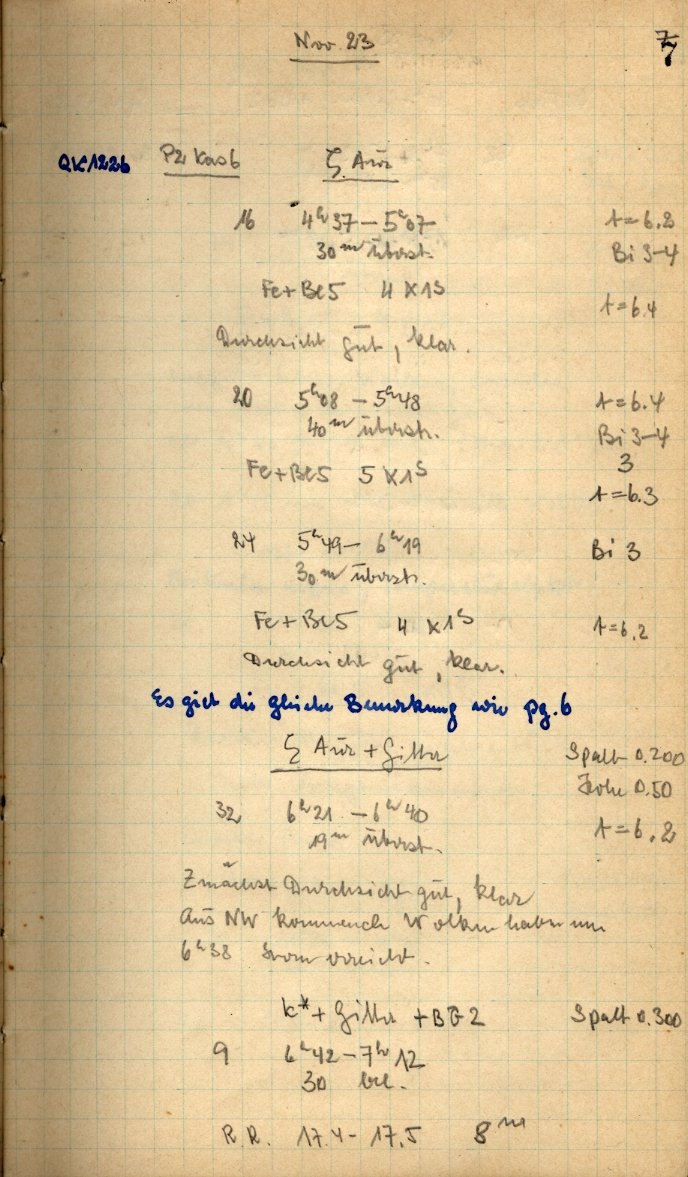 Nov. 23 7
QK1226 P2 Kas 6 ζ Aur
16 4h37 – 5h07 t=6.8
30m überst. Bi 3-4
Fe+Be5 4 x 1s
t=6.4
Durchsicht gut, klar.
20 5h08 – 5h48 t=6.4
40m überstr. Bi 3-4
Fe+Be5 5 x 1s 3
t=6.3
24 5h49 – 6h19 Bi 3
30m überstr.
Fe+Be5 4 x 1s t=6,2
Durchsicht gut, klar.
Es gilt die gleiche Bemerkung wie pg. 6
ζ Aur + Gitter Spalt 0.200
Höhe 0.50
32 6h21 – 6h40 t=6.2
19m überst.
Zunächst Durchsicht gut, klar
Aus NW kommende Wolken haben um
6h38 erreicht.
k* + Gitter + BG2 Spalt 0.300
9 6h42 – 7h12
30 bel.
R.R. 17.4 - 17.5 8m